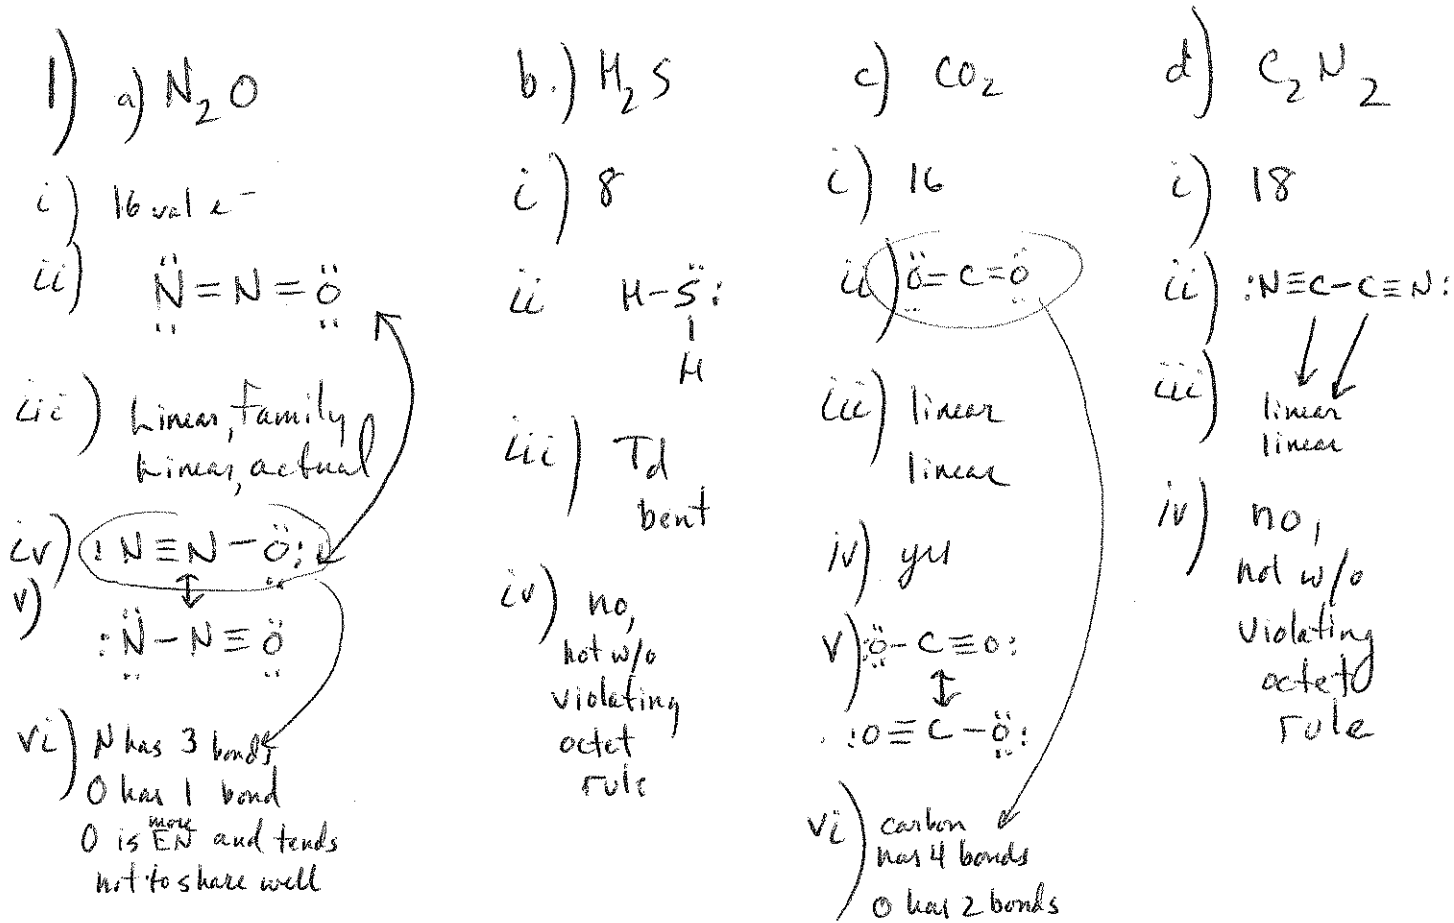 1) a) N₂O
i) 16 val e⁻
ii) N̤̈ = N = Ö̤
iii) Linear, family
Linear, actual
iv) :N ≡ N − Ö̤:
v)
:N̤̈ − N ≡ Ö̤
vi) N has 3 bonds
O has 1 bond
O is more EN and tends
not to share well
b.) H₂S
i) 8
ii H − S̈:
|
H
iii) Td
bent
iv) no,
not w/o
violating
octet
rule
c) CO₂
i) 16
ii) Ö̤ = C = Ö̤
iii) linear
linear
iv) yes
v) :Ö̤ − C ≡ O:
:O ≡ C − Ö̤:
vi) carbon
has 4 bonds
O has 2 bonds
d) C₂N₂
i) 18
ii) :N≡C−C≡N:
iii) linear
linear
iv) no,
not w/o
violating
octet
rule